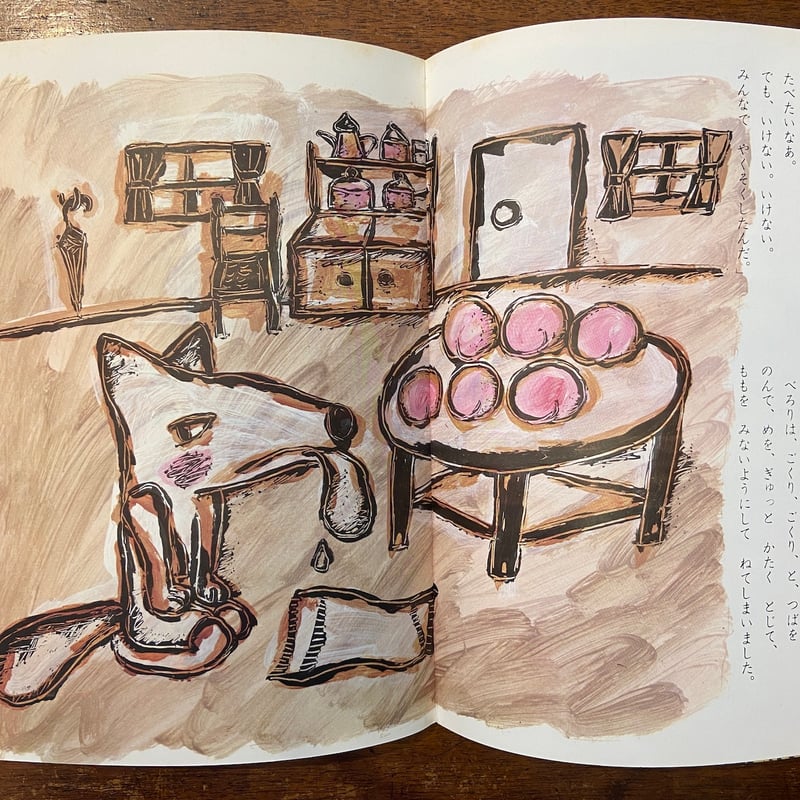 たべたいなあ。
でも、いけない。いけない。
みんなで　やくそくしたんだ。」
ぺろりは、ごくり、ごくり、と、つばを
のんで、めを、ぎゅっと　かたく　とじて、
ももを　みないようにして　ねてしまいました。